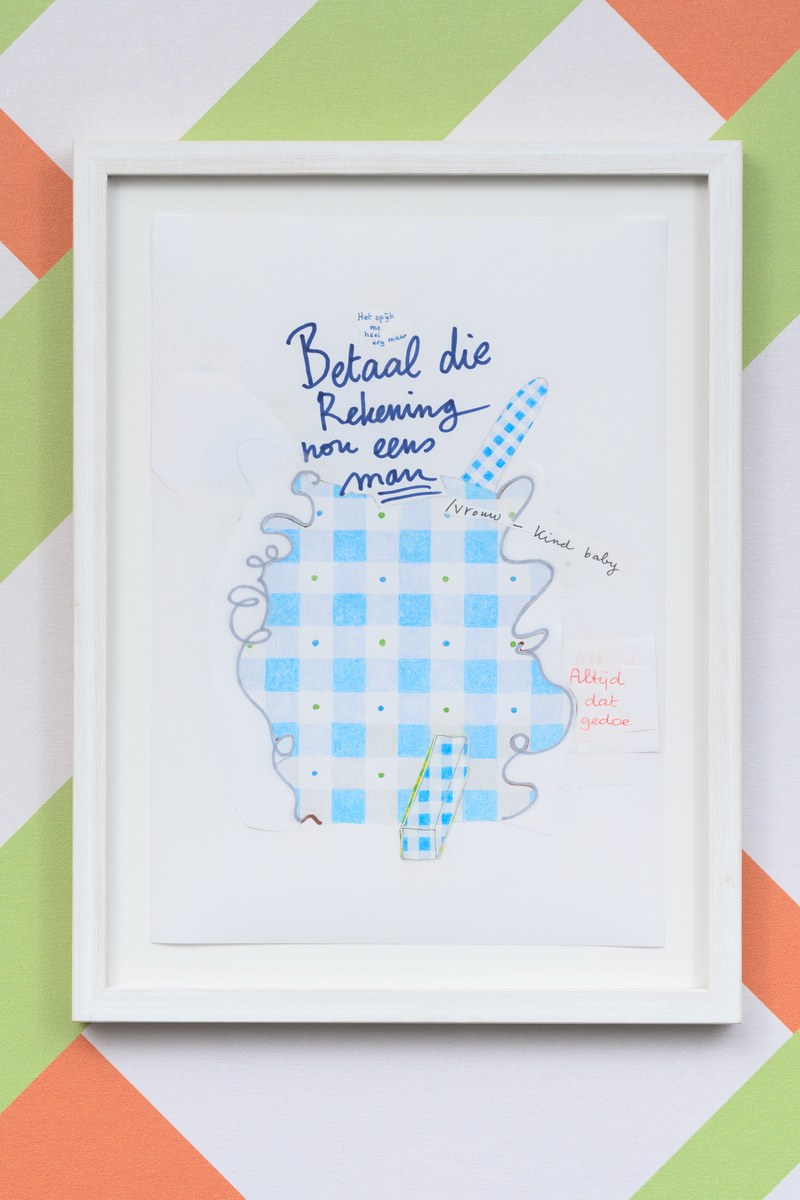 Het spijt
me
heel
erg maar
Betaal die
Rekening
nou eens
man
/vrouw – kind baby
Altijd
dat
gedoe